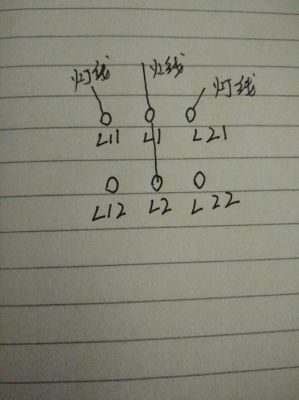 灯线 火线 灯线
L11 L1 L21
L12 L2 L22